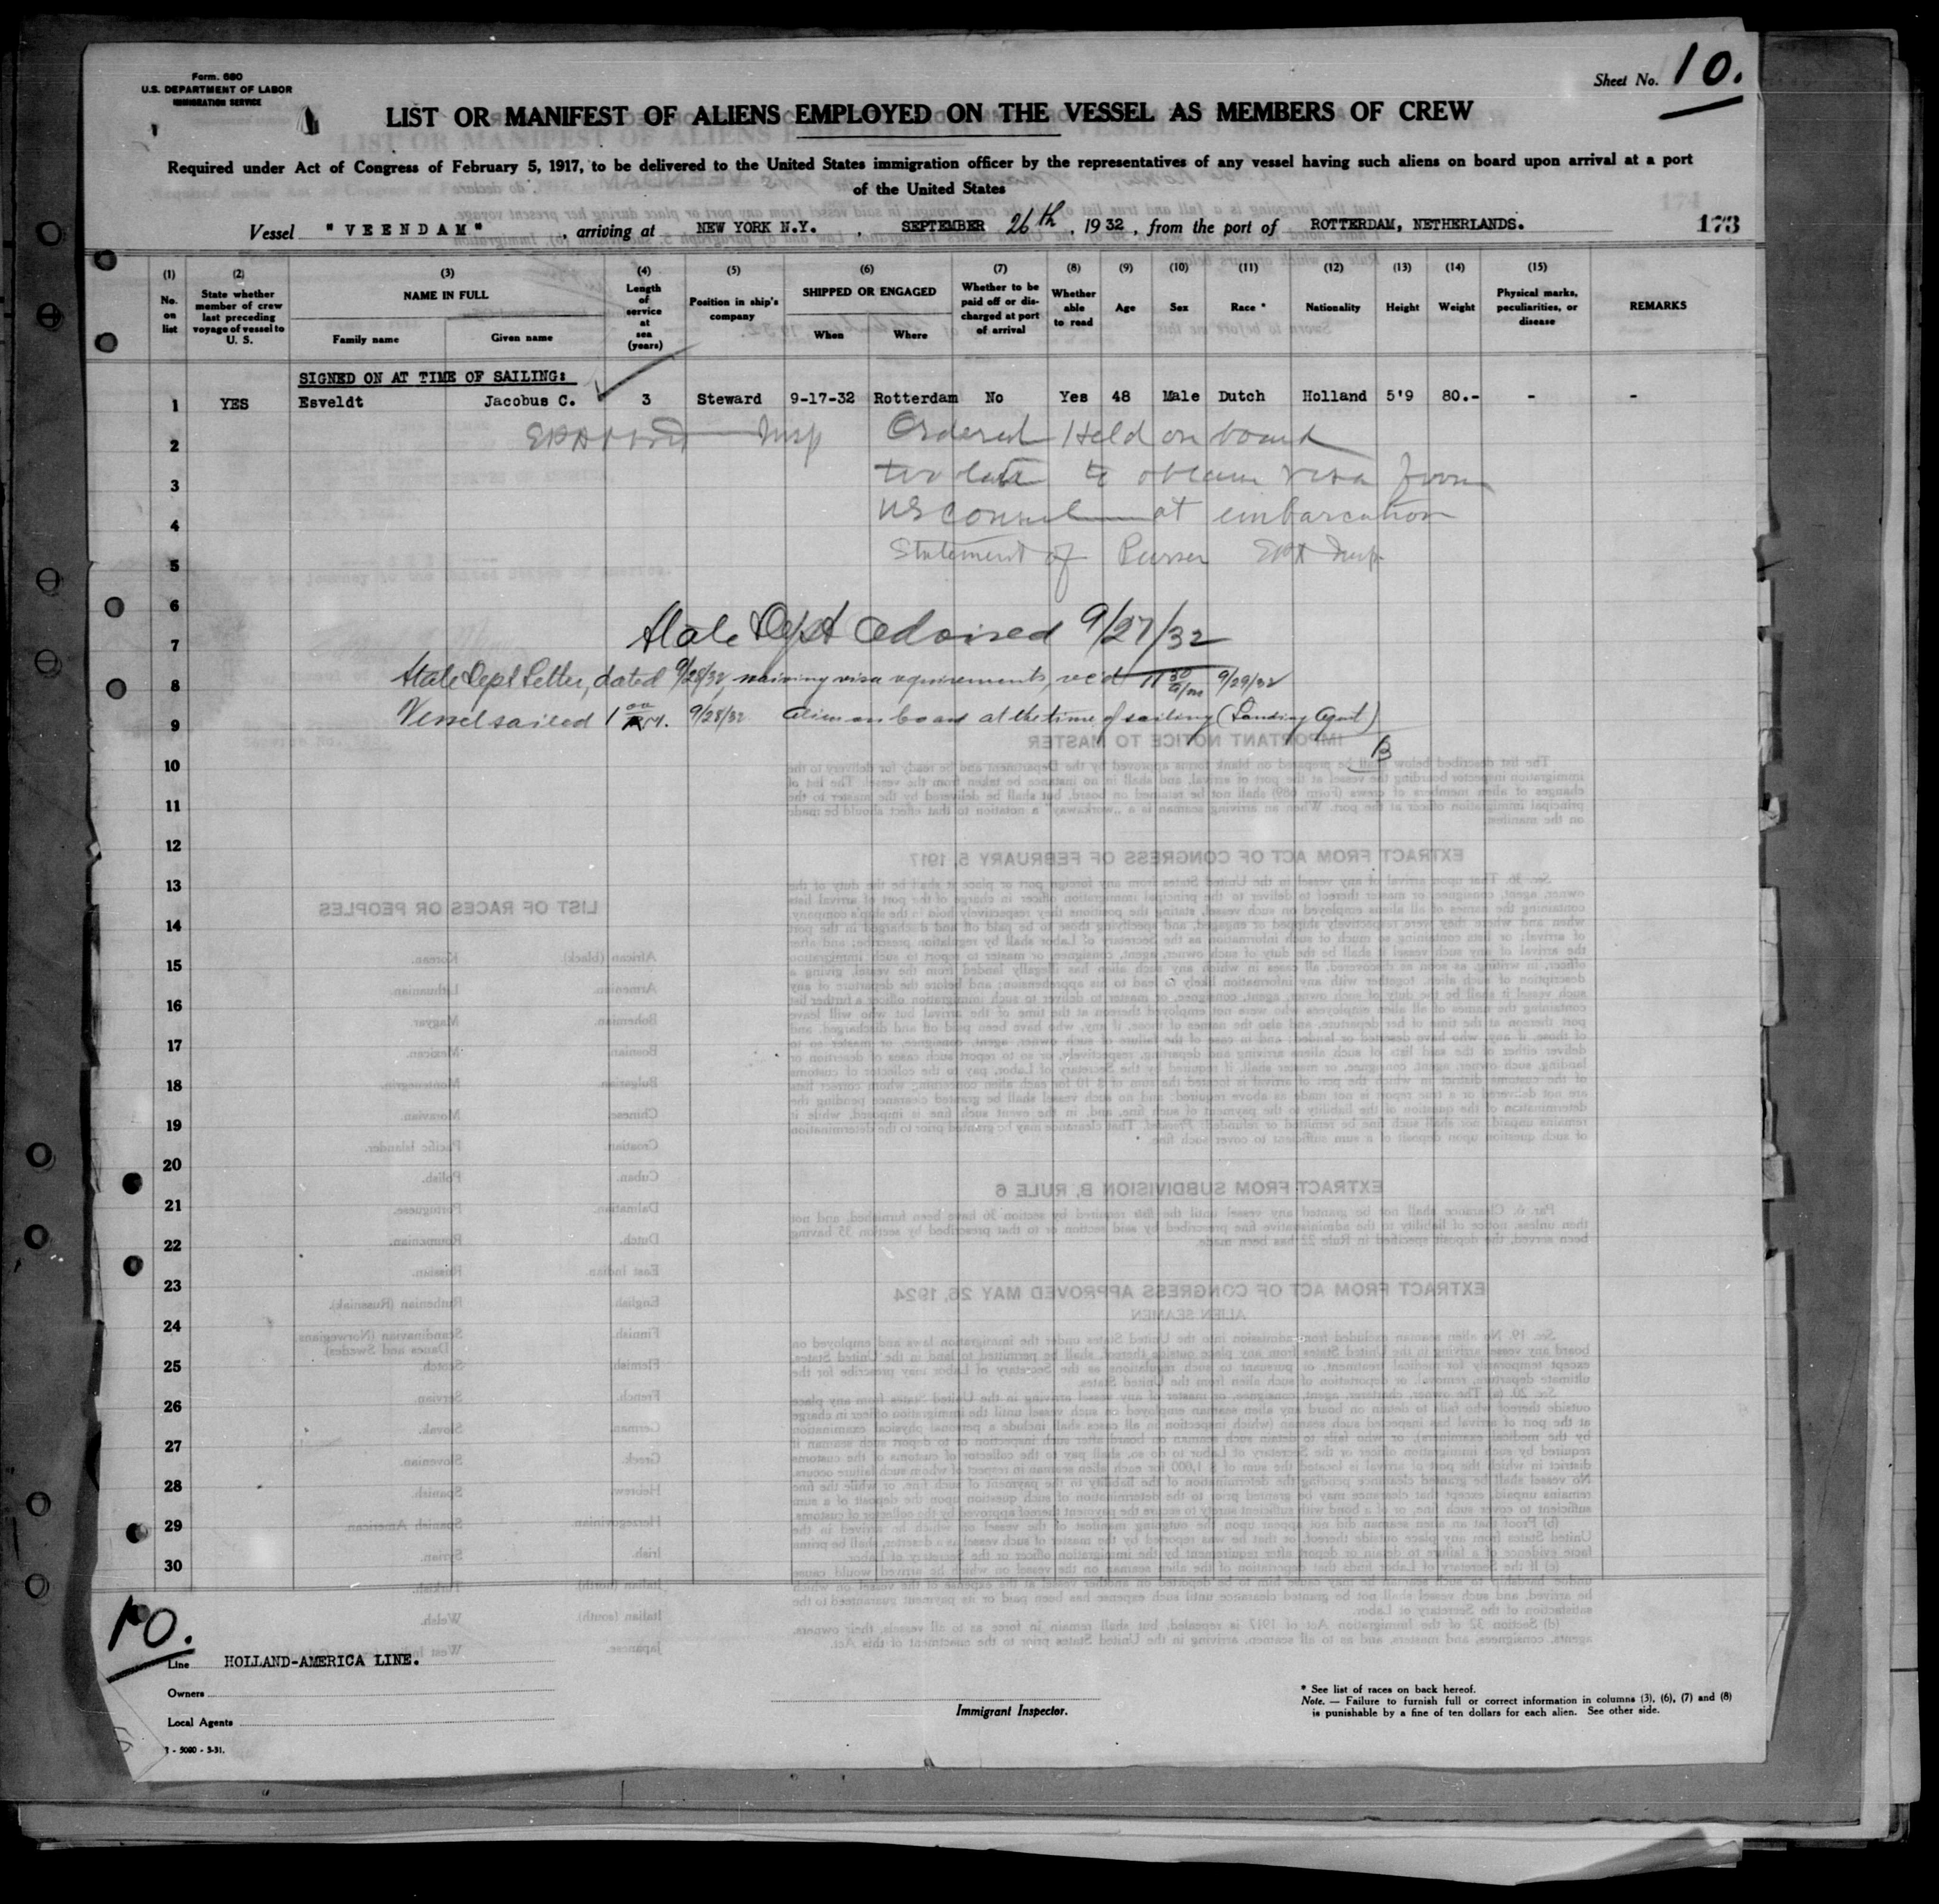 Form. 680
U.S. DEPARTMENT OF LABOR
IMMIGRATION SERVICE
Sheet No. 10.
LIST OR MANIFEST OF ALIENS EMPLOYED ON THE VESSEL AS MEMBERS OF CREW
Required under Act of Congress of February 5, 1917, to be delivered to the United States immigration officer by the representatives of any vessel having such aliens on board upon arrival at a port
of the United States
173
Vessel "VEENDAM", arriving at NEW YORK N.Y., SEPTEMBER 26th, 1932, from the port of ROTTERDAM, NETHERLANDS.
(1) No. on list
(2) State whether member of crew last preceding voyage of vessel to U. S.
(3) NAME IN FULL Family name Given name
(4) Length of service at sea (years)
(5) Position in ship's company
(6) SHIPPED OR ENGAGED When Where
(7) Whether to be paid off or discharged at port of arrival
(8) Whether able to read
(9) Age
(10) Sex
(11) Race *
(12) Nationality
(13) Height
(14) Weight
(15) Physical marks, peculiarities, or disease
REMARKS
SIGNED ON AT TIME OF SAILING:
1 YES Esveldt Jacobus C. 3 Steward 9-17-32 Rotterdam No Yes 48 Male Dutch Holland 5'9 80.- - -
2 Insp Ordered Held on board
3 too late to obtain visa from
4 US Consul at embarcation
5 Statement of Purser Insp.
6
7 State Dept advised 9/27/32
8 State Dept Letter, dated 9/28/32, waiving visa requirements, rec'd 11 30 a/m 9/29/32
9 Vessel sailed 1 00 9/28/32 alien on board at the time of sailing (Landing Agent)
B
10
11
12
13
14
15
16
17
18
19
20
21
22
23
24
25
26
27
28
29
30
10.
Line HOLLAND-AMERICA LINE.
Owners
Local Agents
Immigrant Inspector.
* See list of races on back hereof.
Note. — Failure to furnish full or correct information in columns (3), (6), (7) and (8)
is punishable by a fine of ten dollars for each alien. See other side.
- 5000 - 3-31.